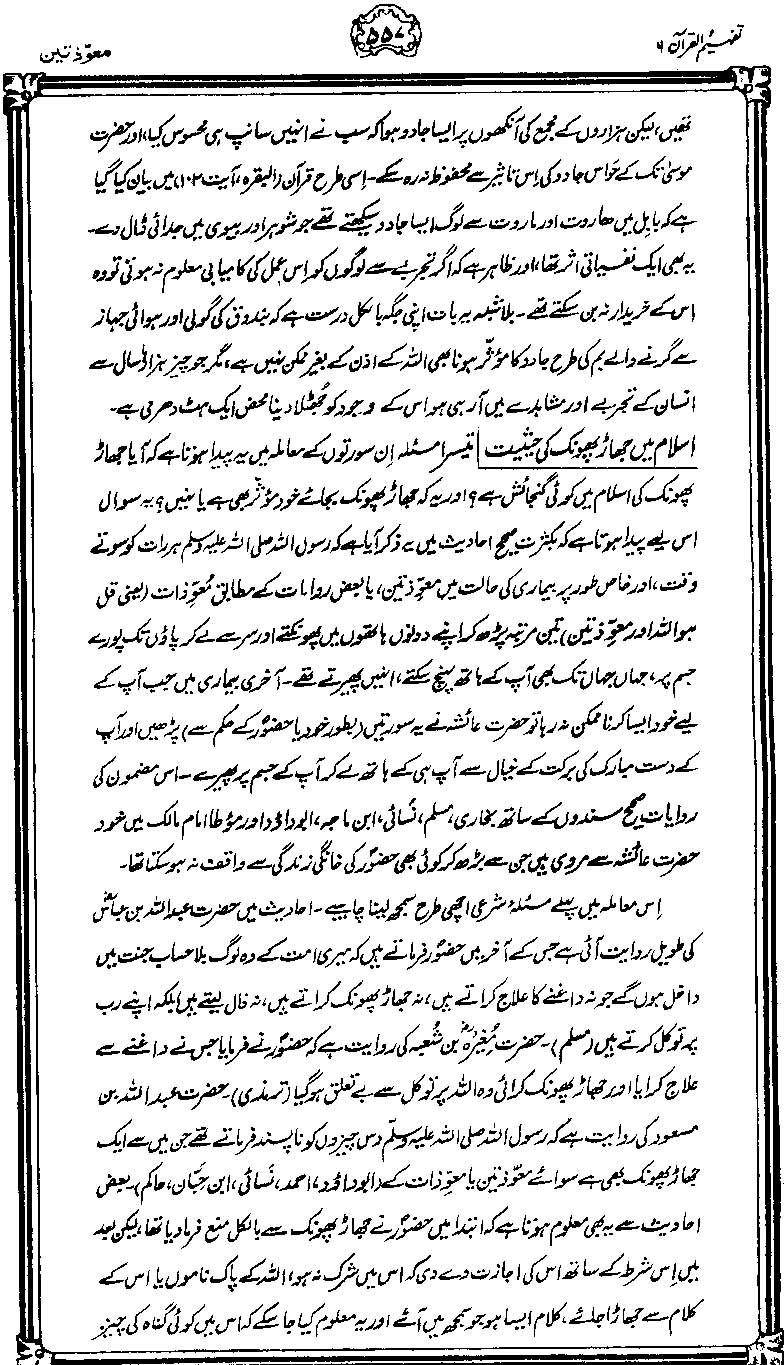 تفہیم القرآن ۶
۵۵۷
معوّذتین
تھیں، لیکن ہزاروں کے مجمع کی آنکھوں پر ایسا جادو ہوا کہ سب نے انہیں سانپ ہی محسوس کیا، اور حضرت
موسیٰ تک کے حواس جادو کی اِس تاثیر سے محفوظ نہ رہ سکے۔ اِسی طرح قرآن (البقرہ، آیت ۱۰۲) میں بیان کیا گیا
ہے کہ بابل میں ھاروت اور ماروت سے لوگ ایسا جادو سیکھتے تھے جو شوہر اور بیوی میں جدائی ڈال دے۔
یہ بھی ایک نفسیاتی اثر تھا، اور ظاہر ہے کہ اگر تجربے سے لوگوں کو اِس عمل کی کامیابی معلوم نہ ہوتی تو وہ
اس کے خریدار نہ بن سکتے تھے۔ بلاشبہ یہ بات اپنی جگہ بالکل درست ہے کہ بندوق کی گولی اور ہوائی جہاز
سے گرنے والے بم کی طرح جادو کا مؤثر ہونا بھی اللہ کے اذن کے بغیر ممکن نہیں ہے، مگر جو چیز ہزارہا سال سے
انسان کے تجربے اور مشاہدے میں آ رہی ہو اس کے وجود کو جُھٹلا دینا محض ایک ہٹ دھرمی ہے۔
اسلام میں جھاڑ پھونک کی حیثیت تیسرا مسئلہ اِن سورتوں کے معاملہ میں یہ پیدا ہوتا ہے کہ آیا جھاڑ
پھونک کی اسلام میں کوئی گنجائش ہے؟ اور یہ کہ جھاڑ پھونک بجائے خود مؤثر بھی ہے یا نہیں؟ یہ سوال
اس لیے پیدا ہوتا ہے کہ بکثرت صحیح احادیث میں یہ ذکر آیا ہے کہ رسول اللہ صلی اللہ علیہ وسلم ہر رات کو سوتے
وقت، اور خاص طور پر بیماری کی حالت میں معوّذتین، یا بعض روایات کے مطابق مُعوّذات (یعنی قل
ہو اللہ اور معوّذتین) تین مرتبہ پڑھ کر اپنے دونوں ہاتھوں میں پھونکتے اور سر سے لے کر پاؤں تک پورے
جسم پر، جہاں جہاں تک بھی آپ کے ہاتھ پہنچ سکتے، انہیں پھیرتے تھے۔ آخری بیماری میں جب آپ کے
لیے خود ایسا کرنا ممکن نہ رہا تو حضرت عائشہ نے یہ سورتیں (بطور خود یا حضورؐ کے حکم سے) پڑھیں اور آپ
کے دست مبارک کی برکت کے خیال سے آپ ہی کے ہاتھ لے کر آپ کے جسم پر پھیرے۔ اس مضمون کی
روایات صحیح سندوں کے ساتھ بخاری، مسلم، نسائی، ابن ماجہ، ابوداؤد اور مؤطا امام مالک میں خود
حضرت عائشہؓ سے مروی ہیں جن سے بڑھ کر کوئی بھی حضورؐ کی خانگی زندگی سے واقف نہ ہو سکتا تھا۔
اِس معاملہ میں پہلے مسئلۂ شرعی اچھی طرح سمجھ لینا چاہیے۔ احادیث میں حضرت عبداللہ بن عباسؓ
کی طویل روایت آئی ہے جس کے آخر میں حضور فرماتے ہیں کہ میری امت کے وہ لوگ بلا حساب جنت میں
داخل ہوں گے جو نہ داغنے کا علاج کراتے ہیں، نہ جھاڑ پھونک کراتے ہیں، نہ فال لیتے ہیں بلکہ اپنے رب
پر توکل کرتے ہیں (مسلم)۔ حضرت مُغیرہؓ بن شُعبہ کی روایت ہے کہ حضورؐ نے فرمایا جس نے داغنے سے
علاج کرایا اور جھاڑ پھونک کرائی وہ اللہ پر توکل سے بے تعلق ہو گیا (ترمذی)۔ حضرت عبداللہ بن
مسعود کی روایت ہے کہ رسول اللہ صلی اللہ علیہ وسلم دس چیزوں کو ناپسند فرماتے تھے جن میں سے ایک
جھاڑ پھونک بھی ہے سوائے معوّذتین یا معوّذات کے (ابوداؤد، احمد، نسائی، ابن حبّان، حاکم)۔ بعض
احادیث سے یہ بھی معلوم ہوتا ہے کہ ابتدا میں حضورؐ نے جھاڑ پھونک سے بالکل منع فرما دیا تھا، لیکن بعد
میں اِس شرط کے ساتھ اس کی اجازت دے دی کہ اس میں شرک نہ ہو، اللہ کے پاک ناموں یا اس کے
کلام سے جھاڑا جائے، کلام ایسا ہو جو سمجھ میں آئے اور یہ معلوم کیا جا سکے کہ اس میں کوئی گناہ کی چیز